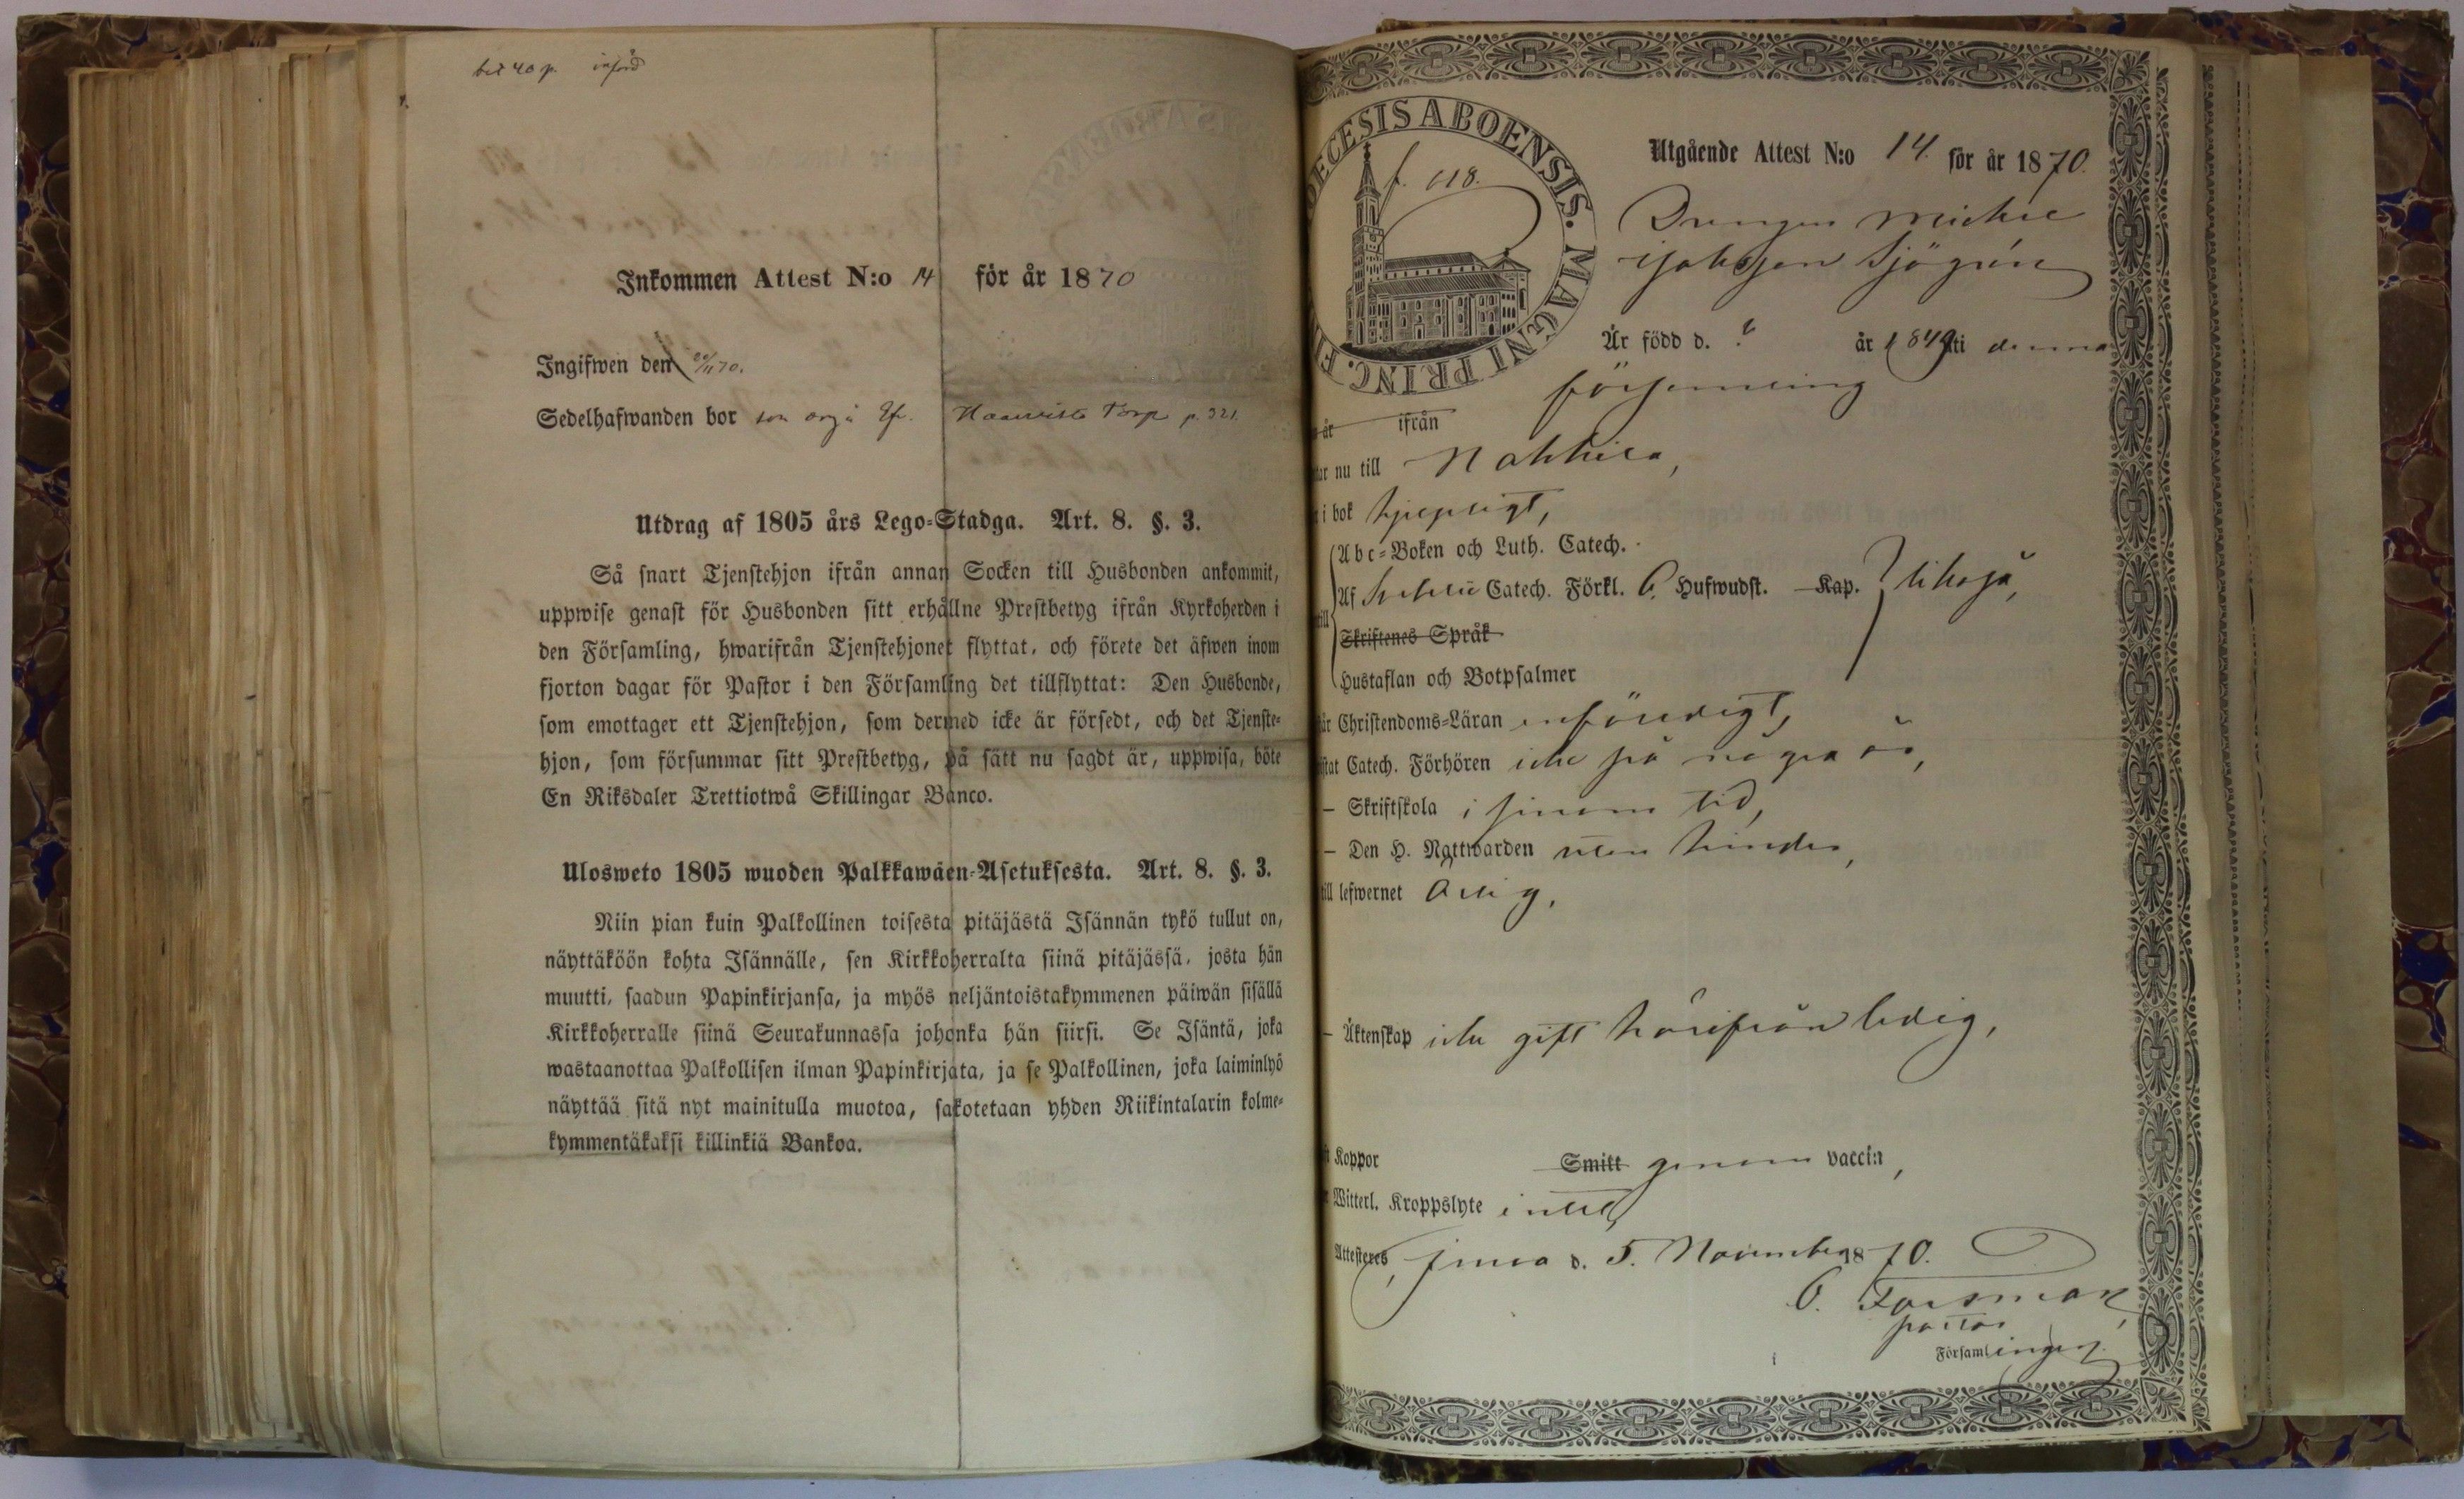 bet 40 p. införd
Inkommen Attest N:o 14 för år 1870
Ingifwen den 20/11 70.
Sedelhafwanden bor son Torp p. 321.
Utdrag af 1805 års Lego-Stadga. Art. 8. §. 3.
Så snart Tjenstehjon ifrån annan Socken till Husbonden ankommit,
uppwise genast för Husbonden sitt erhållne Prestbetyg ifrån Kyrkoherden i
den Församling, hwarifrån Tjenstehjonet flyttat, och förete det äfwen inom
fjorton dagar för Pastor i den Församling det tillflyttat: Den Husbonde,
som emottager ett Tjenstehjon, som dermed icke är försedt, och det Tjenste-
hjon, som försummar sitt Prestbetyg, på sätt nu sagdt är, uppwisa, böte
En Riksdaler Trettiotwå Skillingar Banco.
Ulosweto 1805 wuoden Palkkawäen-Asetuksesta. Art. 8. §. 3.
Niin pian kuin Palkollinen toisesta pitäjästä Isännän tykö tullut on,
näyttäköön kohta Isännälle, sen Kirkkoherralta siinä pitäjässä, josta hän
muutti, saadun Papinkirjansa, ja myös neljäntoistakymmenen päiwän sisällä
Kirkkoherralle siinä Seurakunnassa johonka hän siirsi. Se Isäntä, joka
wastaanottaa Palkollisen ilman Papinkirjata, ja se Palkollinen, joka laiminlyö
näyttää sitä nyt mainitulla muotoa, sakotetaan yhden Riikintalarin kolme-
kymmentäkaksi killinkiä Bankoa.
DIOECESIS ABOENSIS. MAGNI PRINC. FI
f. 118.
Utgående Attest N:o 14. för år 1870.
Drengen Michel
Sjögrén
Är född d. ? år 1849 i denna
församling
år ifrån
nu till Nakkila,
i bok
Abc-Boken och Luth. Catech.
Af Catech. Förkl. 6. Hufwudst. Kap. likaså,
Skriftenes Språk
Hustaflan och Botpsalmer
Christendoms-Läran
Catech. Förhören icke på några år,
– Skriftskola i sinom tid,
– Den H. Nattwarden utan hinder,
till lefwernet ärlig,
– Äktenskap icke gift härifrån ledig,
Koppor Smitt genom vaccin,
Witterl. Kroppslyte intet,
Attesteres, d. 5. November 1870.
O. Forsman
pastor
i Församlingen.